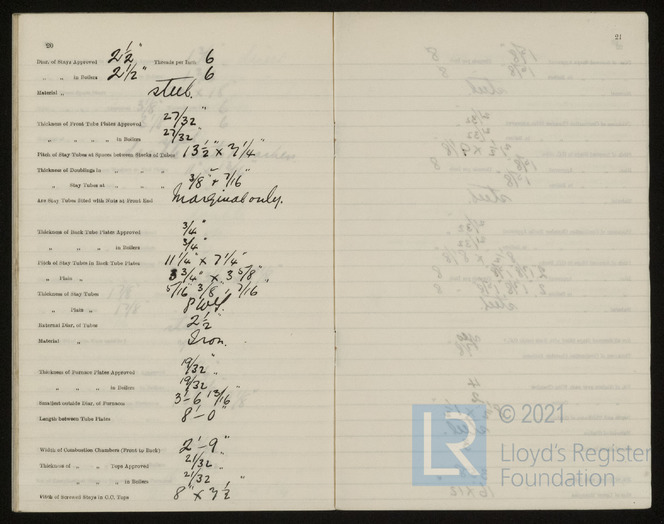 20
Diam. of Stays Approved 2 1/2" Threads per Inch 6
" " in Boilers 2 1/2" 6
Material " steel.
Thickness of Front Tube Plates Approved 27/32"
" " " " in Boilers 27/32"
Pitch of Stay Tubes at Spaces between Stacks of Tubes 13 1/2" x 7 1/4"
Thickness of Doublings in " "
" Stay Tubes at " " 3/8" + 7/16"
Are Stay Tubes fitted with Nuts at Front End Marginal only.
Thickness of Back Tube Plates Approved 3/4"
" " " " in Boilers 3/4"
Pitch of Stay Tubes in Back Tube Plates 11 1/4" x 7 1/4"
" Plain " 3 3/4" x 3 5/8"
Thickness of Stay Tubes 5/16" 3/8", 7/16"
" Plain " 8 W.G.
External Diar. of Tubes 2 1/2"
Material " Iron.
Thickness of Furnace Plates Approved 19/32"
" " " in Boilers 19/32"
Smallest outside Diar. of Furnaces 3'-6 13/16"
Length between Tube Plates 8'-0"
Width of Combustion Chambers (Front to Back) 2'-9"
Thickness of " " Tops Approved 21/32"
" " " " in Boilers 21/32"
Pitch of Screwed Stays in C.C. Tops 8" x 7 1/2
21
LR
© 2021
Lloyd's Register
Foundation